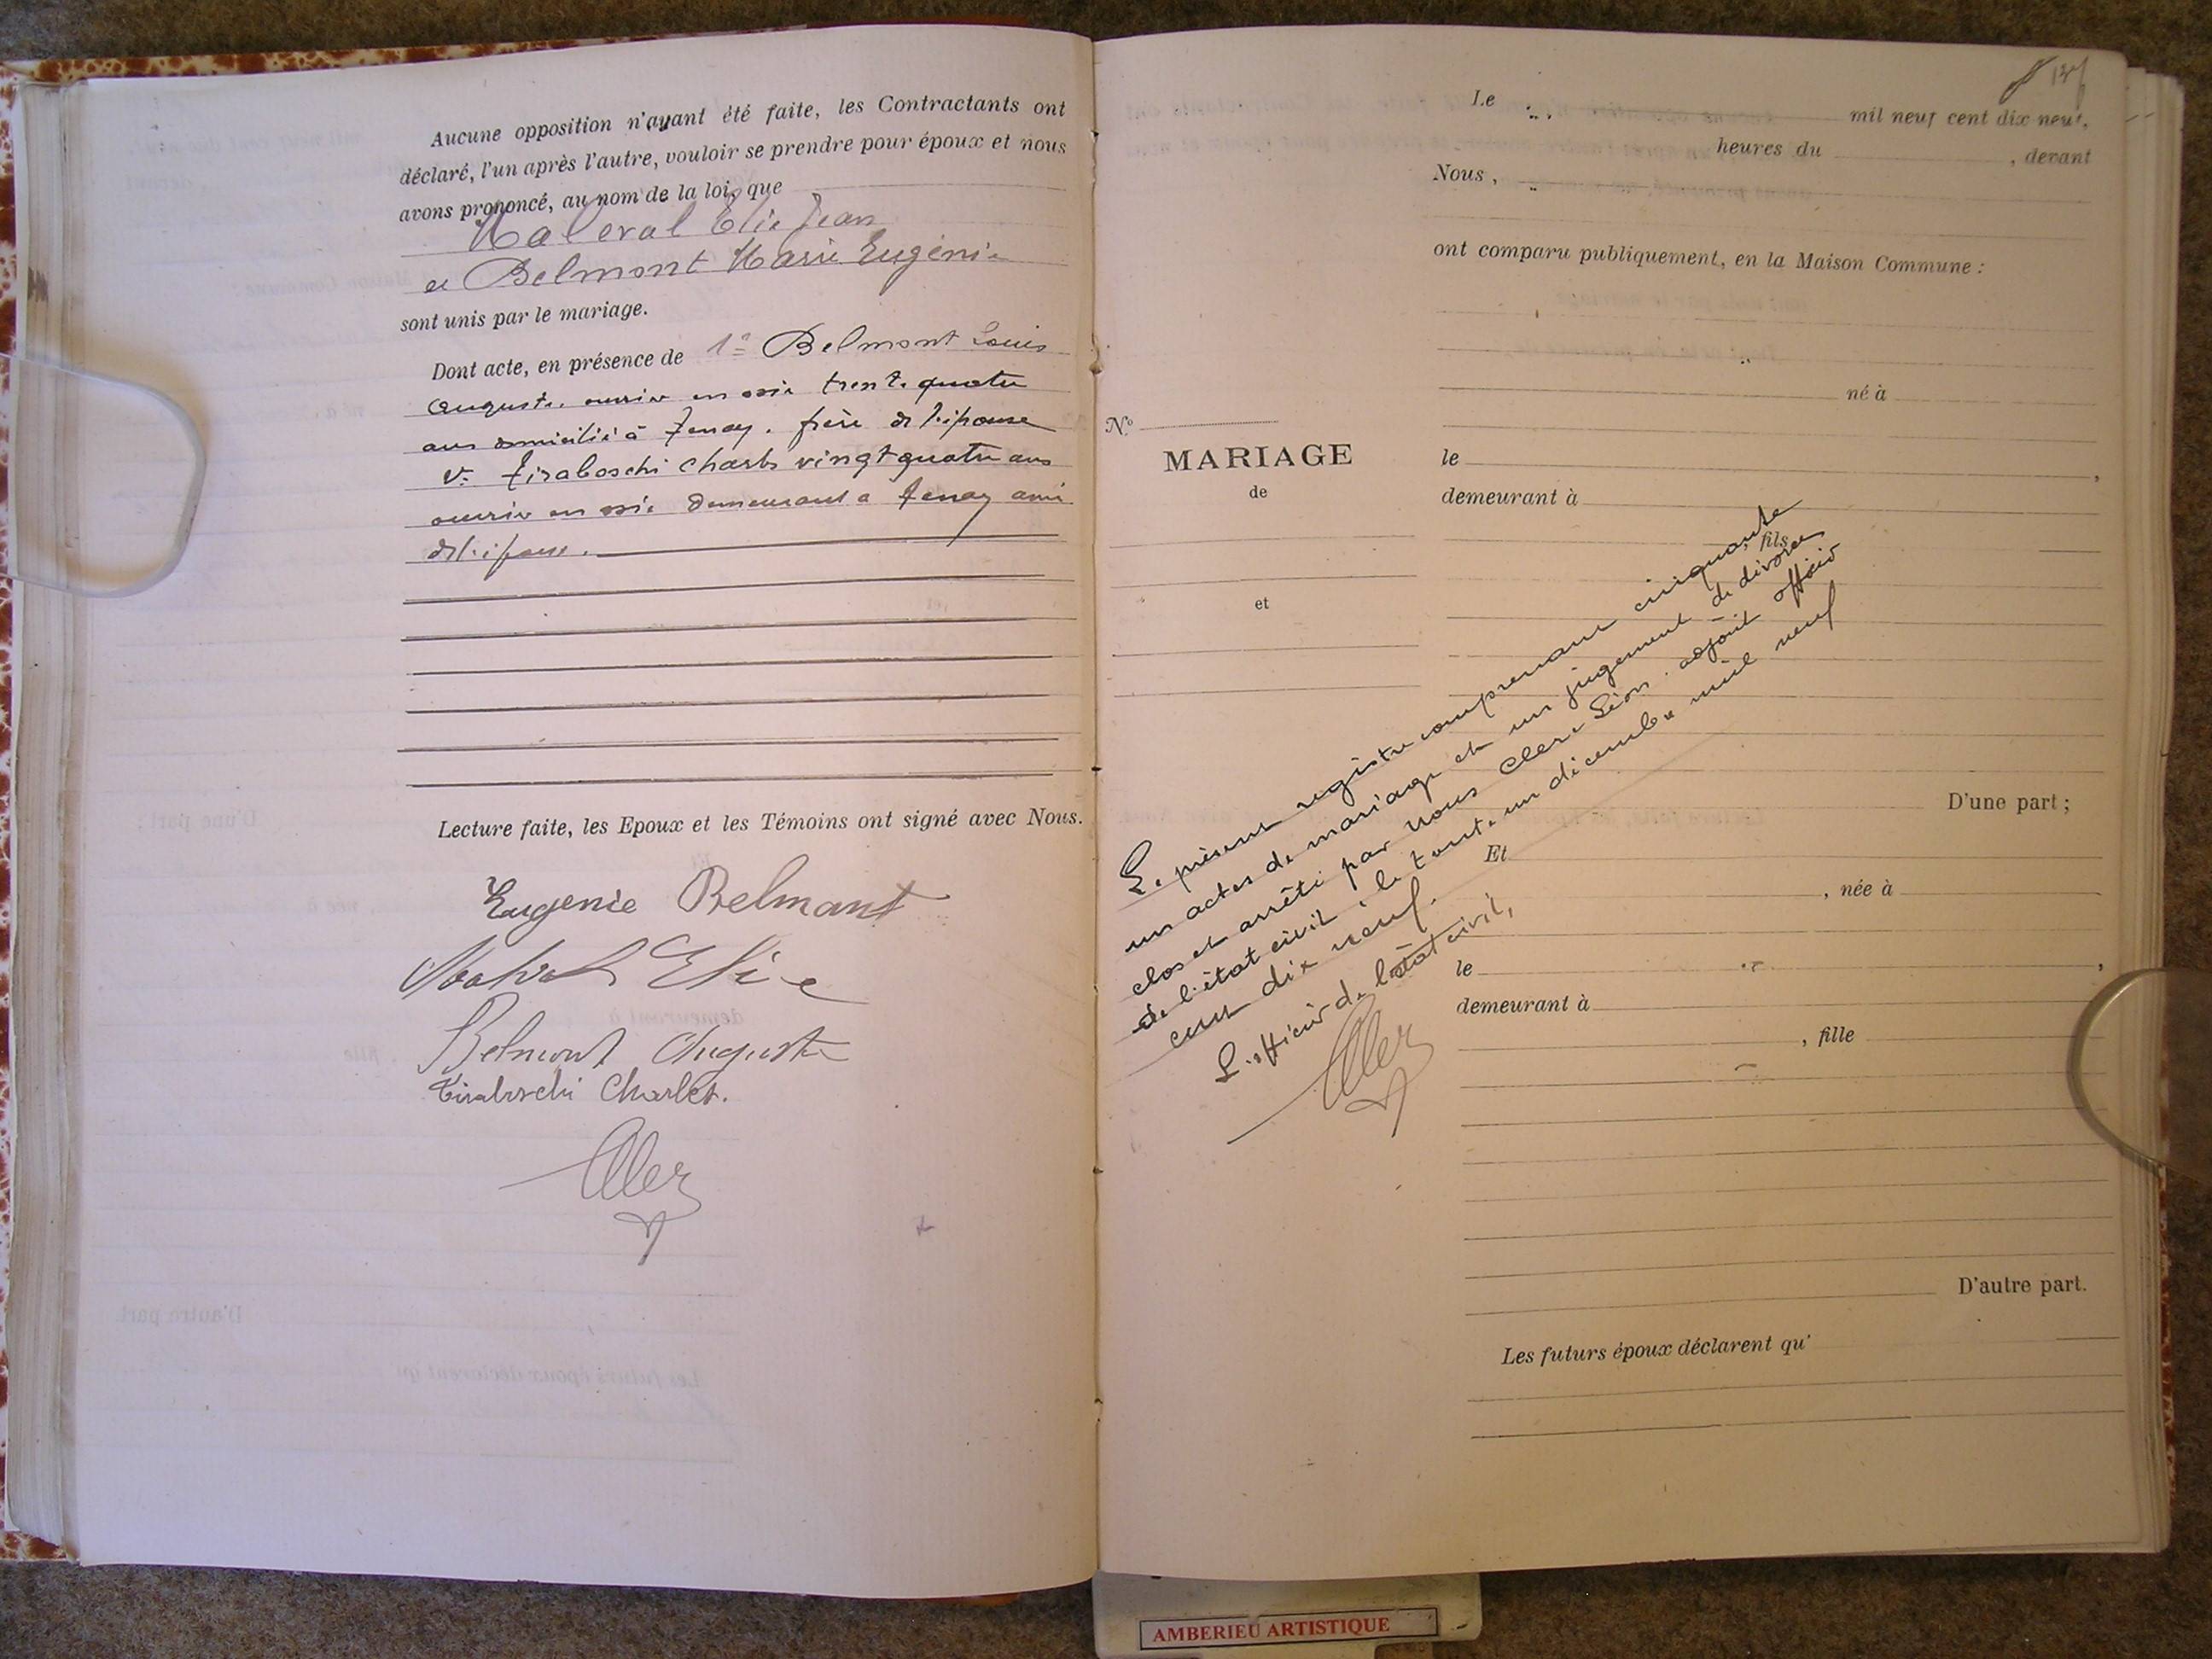 Aucune opposition n'ayant été faite, les Contractants ont
déclaré, l'un après l'autre, vouloir se prendre pour époux et nous
avons prononcé, au nom de la loi, que
Maleval Elie Jean
et Belmont Marie Eugénie
sont unis par le mariage.
Dont acte, en présence de 1º Belmont Louis
Auguste. ouvrier en soie trente quatre
ans domicilié à Tenay. frère de l'épouse
2º Tiraboschi Charles vingt quatre ans
ouvrier en soie demeurant a Tenay ami
de l'épouse.
Lecture faite, les Epoux et les Témoins ont signé avec Nous.
Eugenie Belmont
Maleval Elie
Belmont Auguste
Tiraboschi Charles.
Clerc
Le mil neuf cent dix neuf,
heures du , devant
Nous,
ont comparu publiquement, en la Maison Commune :
né à
Nº
MARIAGE
de
et
le ,
demeurant à
, fils
D'une part ;
Et
, née à
le ,
demeurant à
, fille
D'autre part.
Les futurs époux déclarent qu'
Le présent registre comprenant cinquante
un actes de mariage et un jugement de divorce
clos et arrêté par nous Clerc Léon. adjoint officier
de l'état civil, le trente un décembre mil neuf
cent dix neuf.
L'officier de l'état civil,
Clerc
AMBERIEU ARTISTIQUE